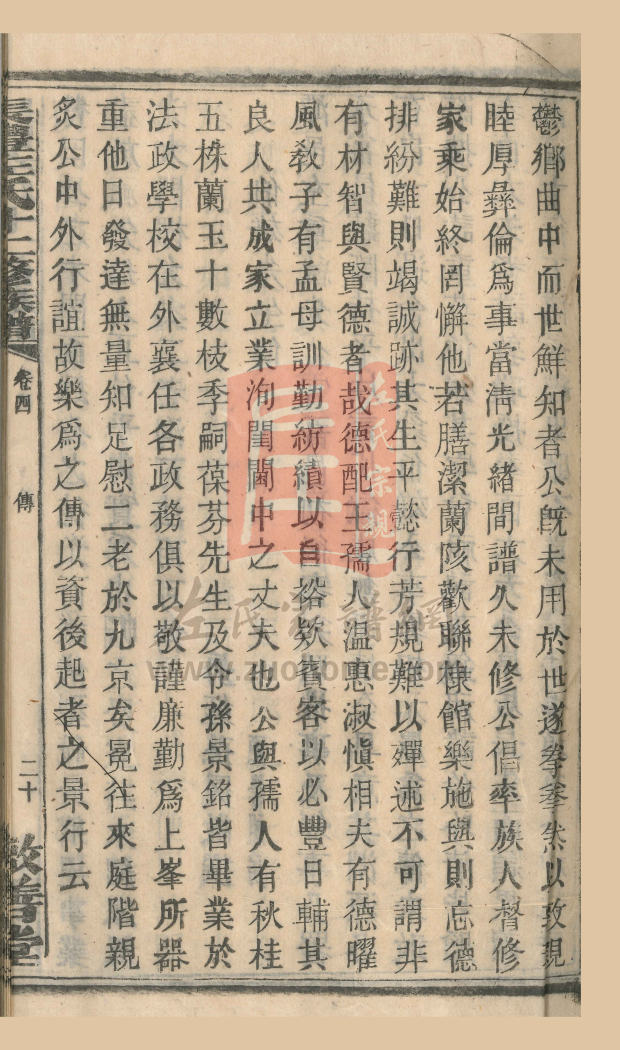 鬱鄉曲中而世鮮知者公既未用於世遂拳拳然以敦親
睦厚彝倫爲事當清光緒間譜久未修公倡率族人督修
家乘始終罔懈他若膳潔蘭陔歡聯棣館樂施與則忘德
排紛難則竭誠跡其生平懿行芳規難以殫述不可謂非
有材智與賢德者哉德配王孺人温惠淑愼相夫有德曜
風敎子有孟母訓勤紡績以自裕欵賓客以必豐日輔其
良人共成家立業洵閨閫中之丈夫也公與孺人有秋桂
五株蘭玉十數枝季嗣葆芬先生及令孫景銘皆畢業於
法政學校在外襄任各政務俱以敬謹廉勤爲上峯所器
重他日發達無量知足慰二老於九京矣冕往來庭階親
炙公中外行誼故樂爲之傳以資後起者之景行云
左氏十二修族譜
卷四
傳
二十
敦善堂
左氏宗親
左氏宗譜網